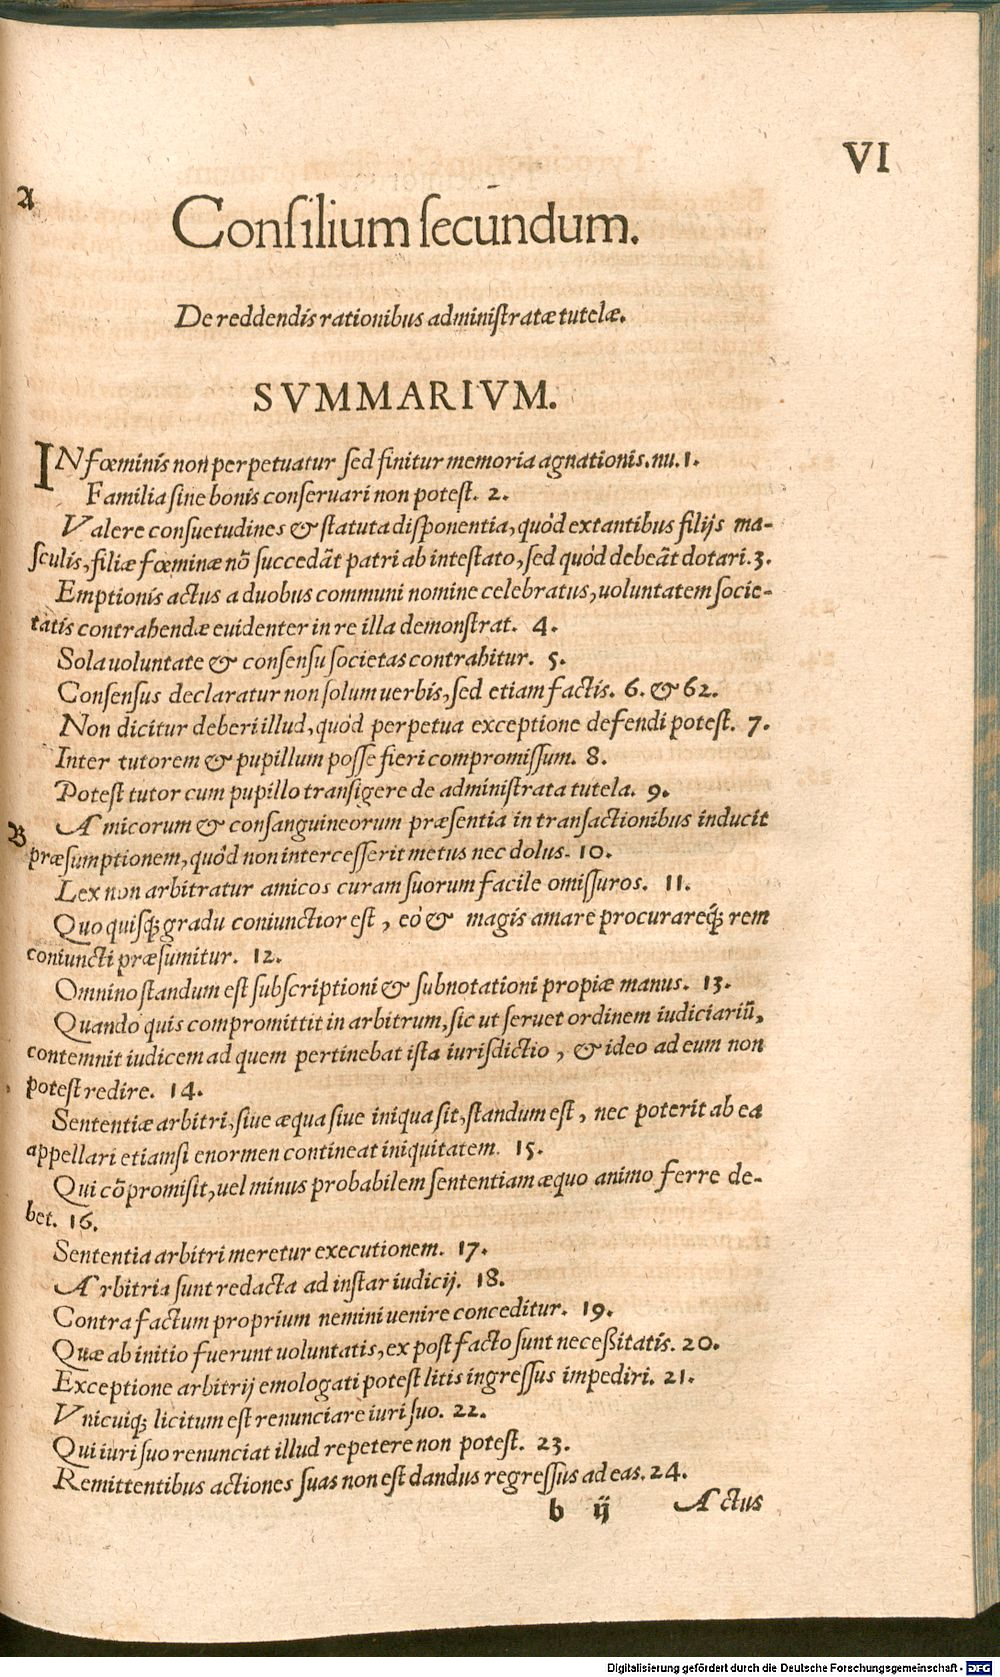 VI
A
Conſilium ſecundum.
De reddendis rationibus adminiſtratæ tutelæ.
SVMMARIVM.
IN fœminis non perpetuatur ſed finitur memoria agnationis. nu. 1.
Familia ſine bonis conſeruari non poteſt. 2.
Valere conſuetudines & ſtatuta diſponentia, quòd extantibus filijs ma-
ſculis, filiæ fœminæ nõ ſuccedãt patri ab inteſtato, ſed quòd debeãt dotari. 3.
Emptionis actus a duobus communi nomine celebratus, uoluntatem ſocie-
tatis contrahendæ euidenter in re illa demonſtrat. 4.
Sola uoluntate & conſenſu ſocietas contrahitur. 5.
Conſenſus declaratur non ſolum uerbis, ſed etiam factis. 6. & 62.
Non dicitur deberi illud, quòd perpetua exceptione defendi poteſt. 7.
Inter tutorem & pupillum poſſe fieri compromiſſum. 8.
Poteſt tutor cum pupillo tranſigere de adminiſtrata tutela. 9.
B
Amicorum & conſanguineorum præſentia in tranſactionibus inducit
præſumptionem, quòd non interceſſerit metus nec dolus. 10.
Lex non arbitratur amicos curam ſuorum facile omiſſuros. 11.
Quo quiſq; gradu coniunctior eſt, eò & magis amare procurareq́; rem
coniuncti præſumitur. 12.
Omnino ſtandum eſt ſubſcriptioni & ſubnotationi propiæ manus. 13.
Quando quis compromittit in arbitrum, ſic ut ſeruet ordinem iudiciariũ,
contemnit iudicem ad quem pertinebat iſta iuriſdictio, & ideo ad eum non
poteſt redire. 14.
Sententiæ arbitri, ſiue æqua ſiue iniqua ſit, ſtandum eſt, nec poterit ab ea
appellari etiamſi enormen contineat iniquitatem. 15.
Qui cõpromiſit, uel minus probabilem ſententiam æquo animo ferre de-
bet. 16.
Sententia arbitri meretur executionem. 17.
Arbitria ſunt redacta ad inſtar iudicij. 18.
Contra factum proprium nemini uenire conceditur. 19.
Quæ ab initio fuerunt uoluntatis, ex poſt facto ſunt neceßitatis. 20.
Exceptione arbitrij emologati poteſt litis ingreſſus impediri. 21.
Vnicuiq; licitum eſt renunciare iuri ſuo. 22.
Qui iuri ſuo renunciat illud repetere non poteſt. 23.
Remittentibus actiones ſuas non eſt dandus regreſſus ad eas. 24.
b ij Actus
Digitalisierung gefördert durch die Deutsche Forschungsgemeinschaft - DFG